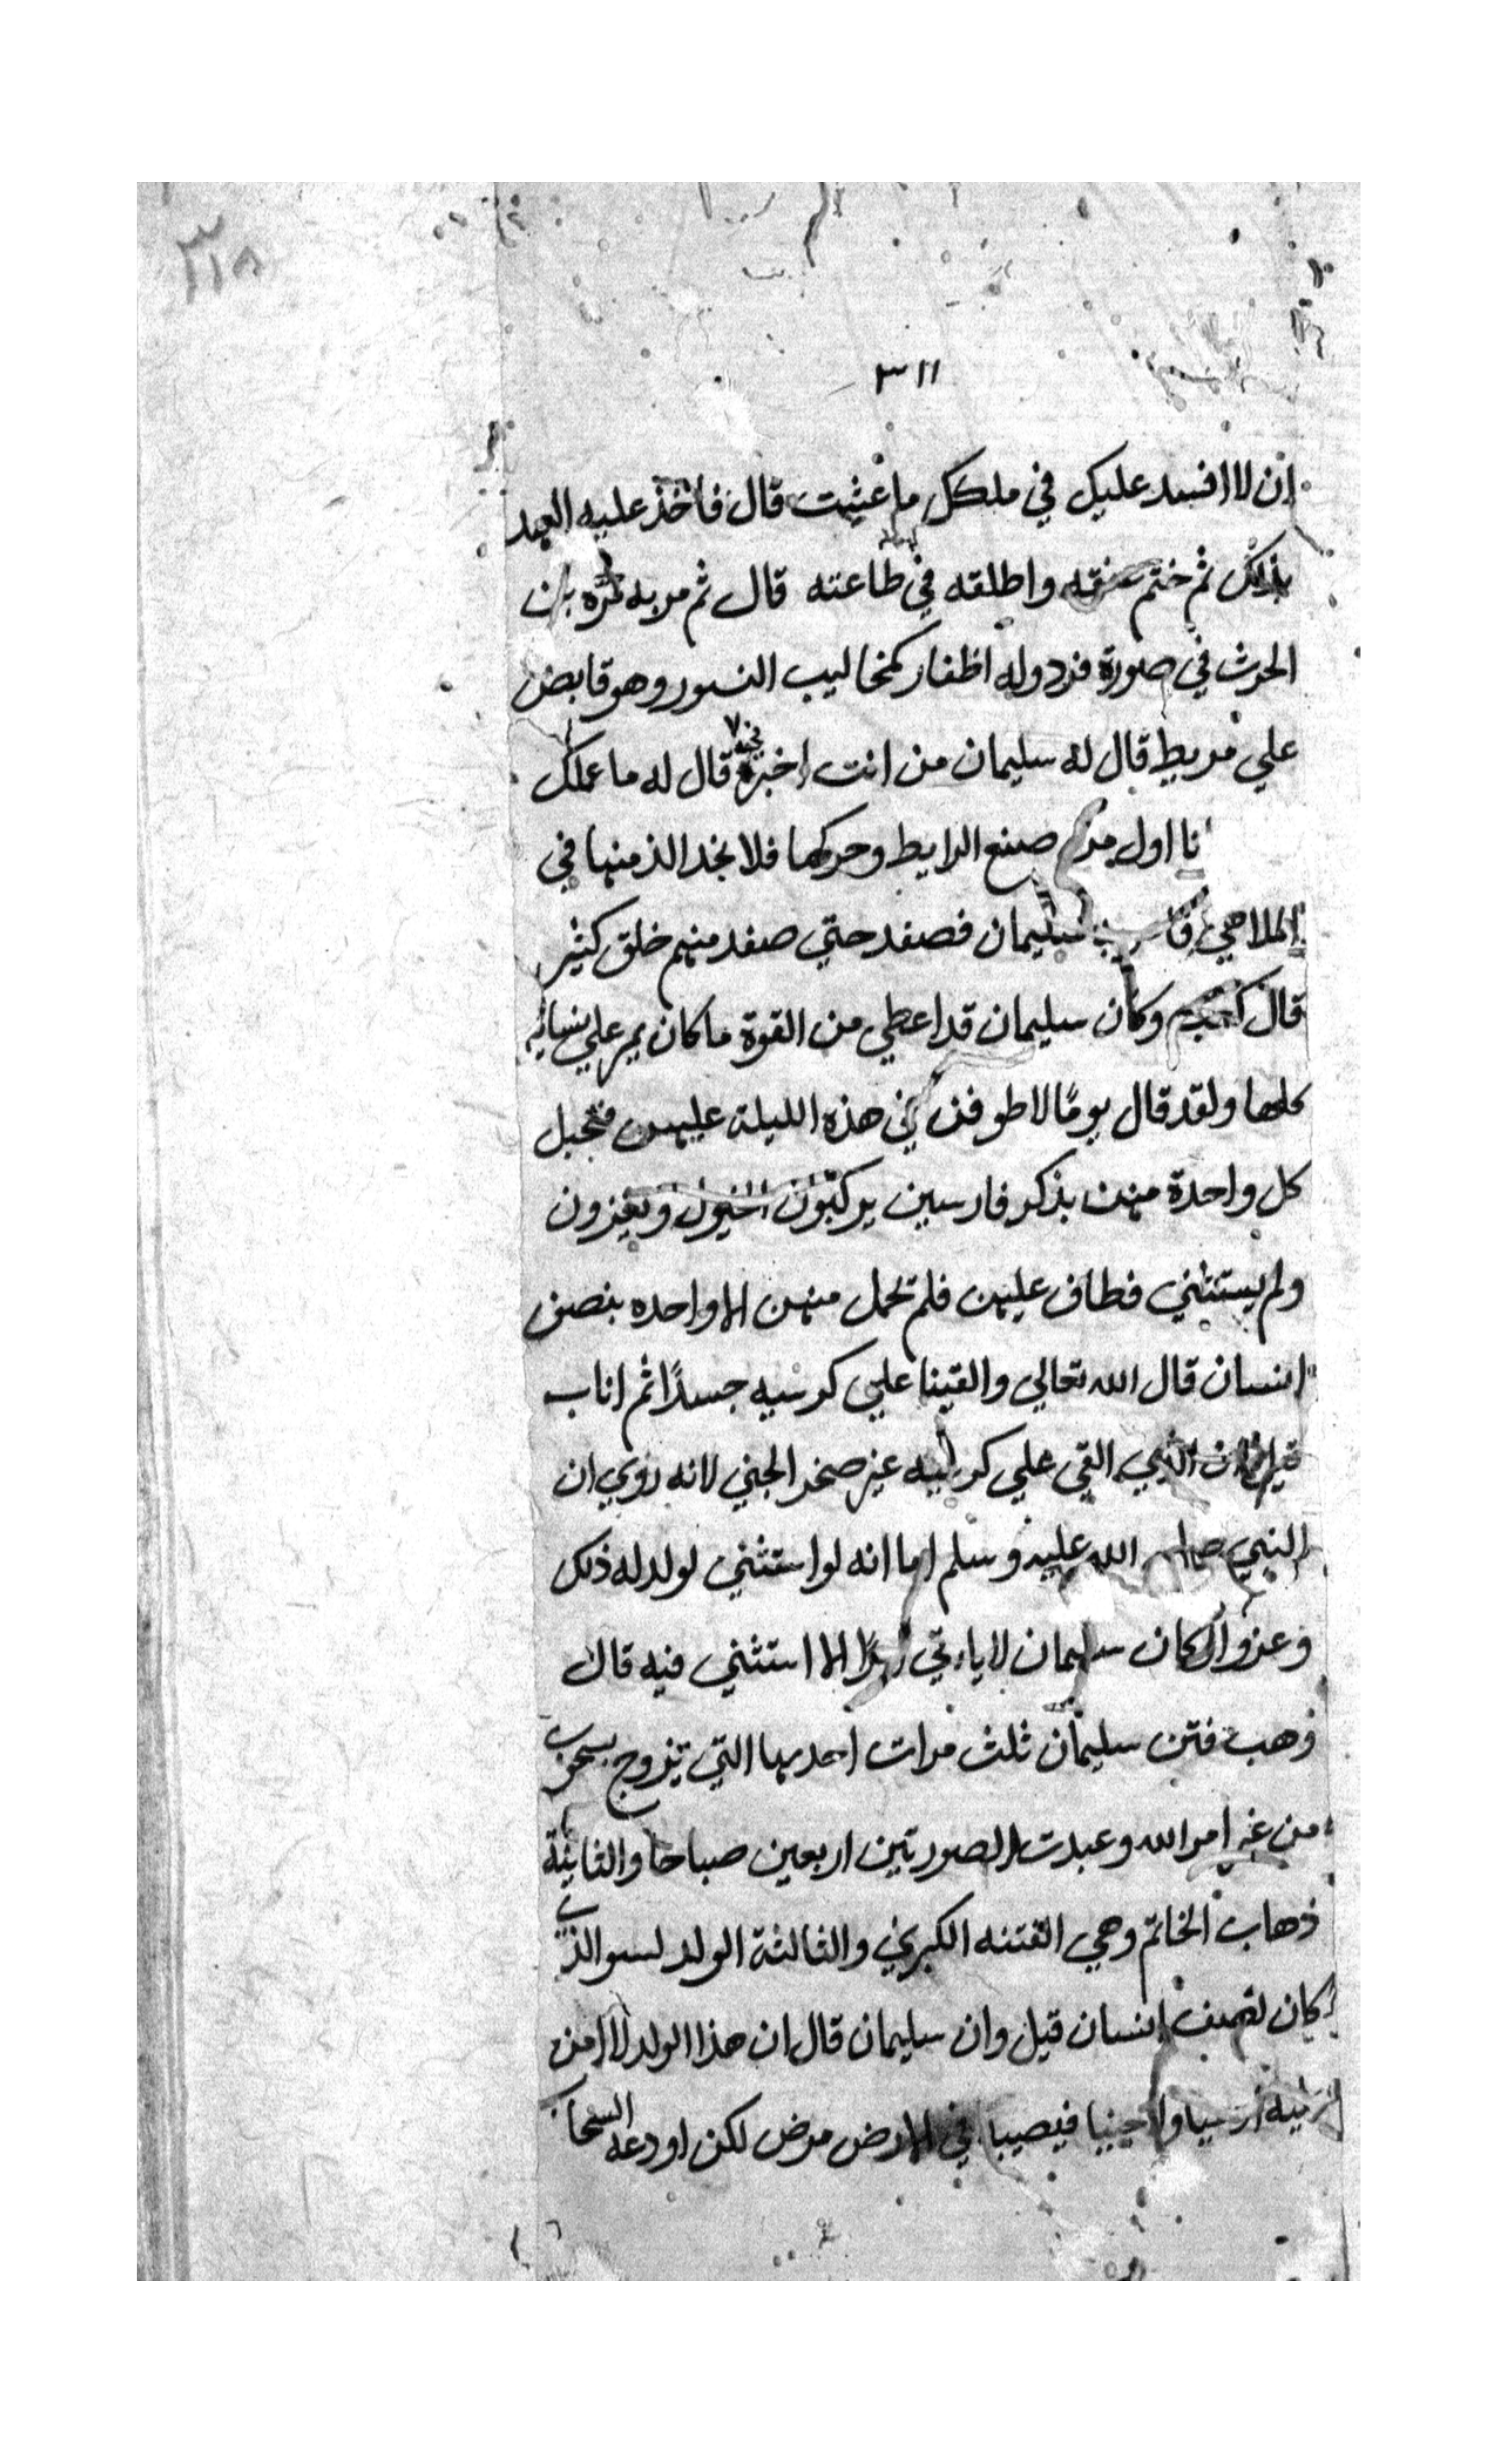 ٣١٨
٣١١
ان لا افسد عليك في ملكك ما عشت قال فاخذ عليه العهد
بذلك ثم ختم عنقه واطلقه في طاعته قال ثم مر به مره بن
الحرث في صورة قرد وله اظفار كمخاليب النسور وهو قابض
علي مربط قال له سليمان من انت اخبره قال له ما عملك
انا اول من صنع المرابط وحركها فلا يجد الذ منها في
الملاهي سليمان فصفد حتي صفد منهم خلق كثير
قال وكان سليمان قد اعطي من القوة ما كان يمر علي نسائه
كلها ولقد قال يومًا لاطوفن في هذه الليلة عليهن فتحبل
كل واحدة منهن بذكر فارسين يركبون الخيول ويغزون
ولم يستثني فطاف عليهن فلم تحمل منهن الا واحده بنصف
انسان قال الله تعالي والقينا علي كرسيه جسدًا ثم اناب
القي علي كرسيه غير صخر الجني لانه روي ان
النبي صلي الله عليه وسلم اما انه لو استثني لولد له ذلك
وغزوا كان سليمان لا ياءتي الا استثني فيه قال
وهب فتن سليمان ثلث مرات احديها التي تزوج بسحر
من غير امر الله وعبدت الصورتين اربعين صباحا والثانية
ذهاب الخاتم وهي الفتنه الكبري والثالثة الولد لسو الذي
كان نصف انسان قيل وان سليمان قال ان هذا الولد لا امن
ولا جنيا فيصيبا في الارض مرض لكن اودعه السحاب